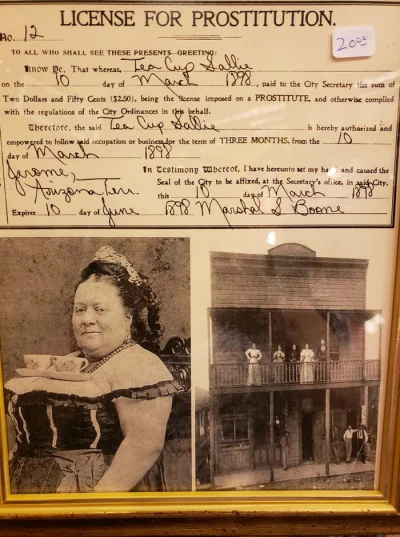 LICENSE FOR PROSTITUTION.
No. 12
20.00
TO ALL WHO SHALL SEE THESE PRESENTS—GREETING:
Know Ye, That whereas, Tea Cup Sallie
on the 10 day of March 1898, paid to the City Secretary the sum of
Two Dollars and Fifty Cents ($2.50), being the license imposed on a PROSTITUTE, and otherwise complied
with the regulations of the City Ordinances in this behalf.
Therefore, the said Tea Cup Sallie is hereby authorized and
empowered to follow said occupation or business for the term of THREE MONTHS, from the 10
day of March 1898
Jerome, Arizona Terr.
In Testimony Whereof, I have hereunto set my hand and caused the
Seal of the City to be affixed, at the Secretary's office, in said City,
this 10 day of March 1898
Expires 10 day of June 1898 Marshal S Boone